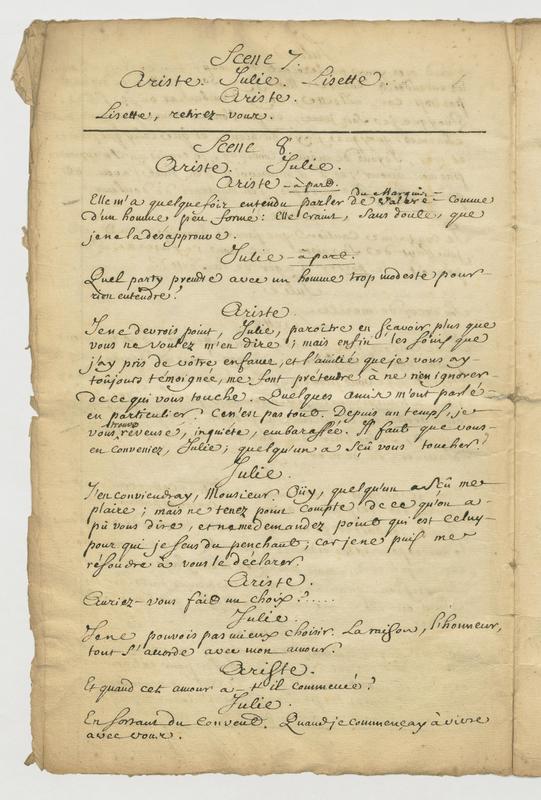 Scene 7.
Ariste. Julie. Lisette.
Ariste.
Lisette, retirez-vous.
Scene 8.
Ariste. Julie.
Ariste - à part.
Elle m'a quelquefois entendu parler de Valere du Marquis - comme
d'un homme peu formé: Elle craint, sans doute, que
je ne la desaprouve.
Julie - à part.
Quel party prendre avec un homme trop modeste pour
rien entendre?
Ariste.
Je ne devrois point, Julie, paroître en scavoir plus que
vous ne voulez m'en dire; mais enfin les soins que
j'ay pris de vôtre enfance, et l'amitié que je vous ay
toujours témoignée, me font prétendre à ne rien ignorer
de ce qui vous touche. Quelques amis m'ont parlé
en particulier. Ce n'en pas tout. Depuis un temps, je
vous trouve réveuse, inquiéte, embarassée. Il faut que vous
en conveniez, Julie; quelqu'un a sçû vous toucher.
Julie.
J'en conviendray, Monsieur. Oüy, quelqu'un a sçû me
plaire; mais ne tenez point compte de ce qu'on a
pû vous dire, et ne me demandez point qui est celuy
pour qui je sens du penchant; car je ne puis me
résoudre à vous le déclarer.
Ariste.
Auriez-vous fait un choix?....
Julie.
Je ne pouvois pas mieux choisir. La raison, l'honneur,
tout s'accorde avec mon amour.
Ariste.
Et quand cet amour a-t'il commencé?
Julie.
En sortant du Convent. Quand je commençay à vivre
avec vous.